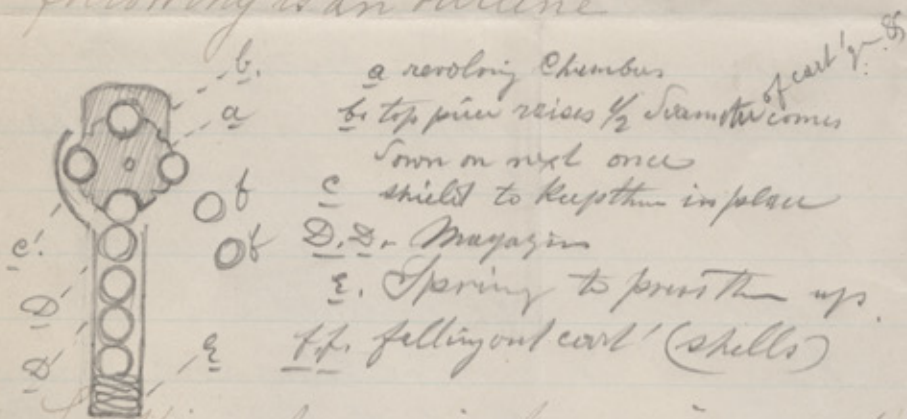 following is an outline
b.
a
c.
D
D
E
f
f
a revolving Chamber
b. top piece raises 1/2 diameter of cart'g. & comes
down on next once
c shield to keep them in place
D. D. Magazin
E. Spring to press them up.
f.f. falling out cart' (shells)